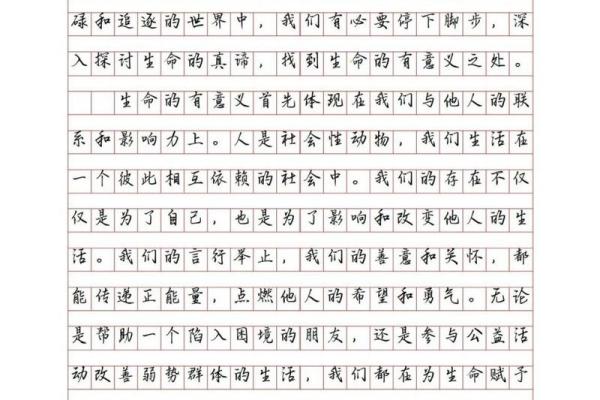 碌和追逐的世界中，我们有必要停下脚步，深
入探讨生命的真谛，找到生命的有意义之处。
生命的有意义首先体现在我们与他人的联
系和影响力上。人是社会性动物，我们生活在
一个彼此相互依赖的社会中。我们的存在不仅
仅是为了自己，也是为了影响和改变他人的生
活。我们的言行举止，我们的善意和关怀，都
能传递正能量，点燃他人的希望和勇气。无论
是帮助一个陷入困境的朋友，还是参与公益活
动改善弱势群体的生活，我们都在为生命赋予